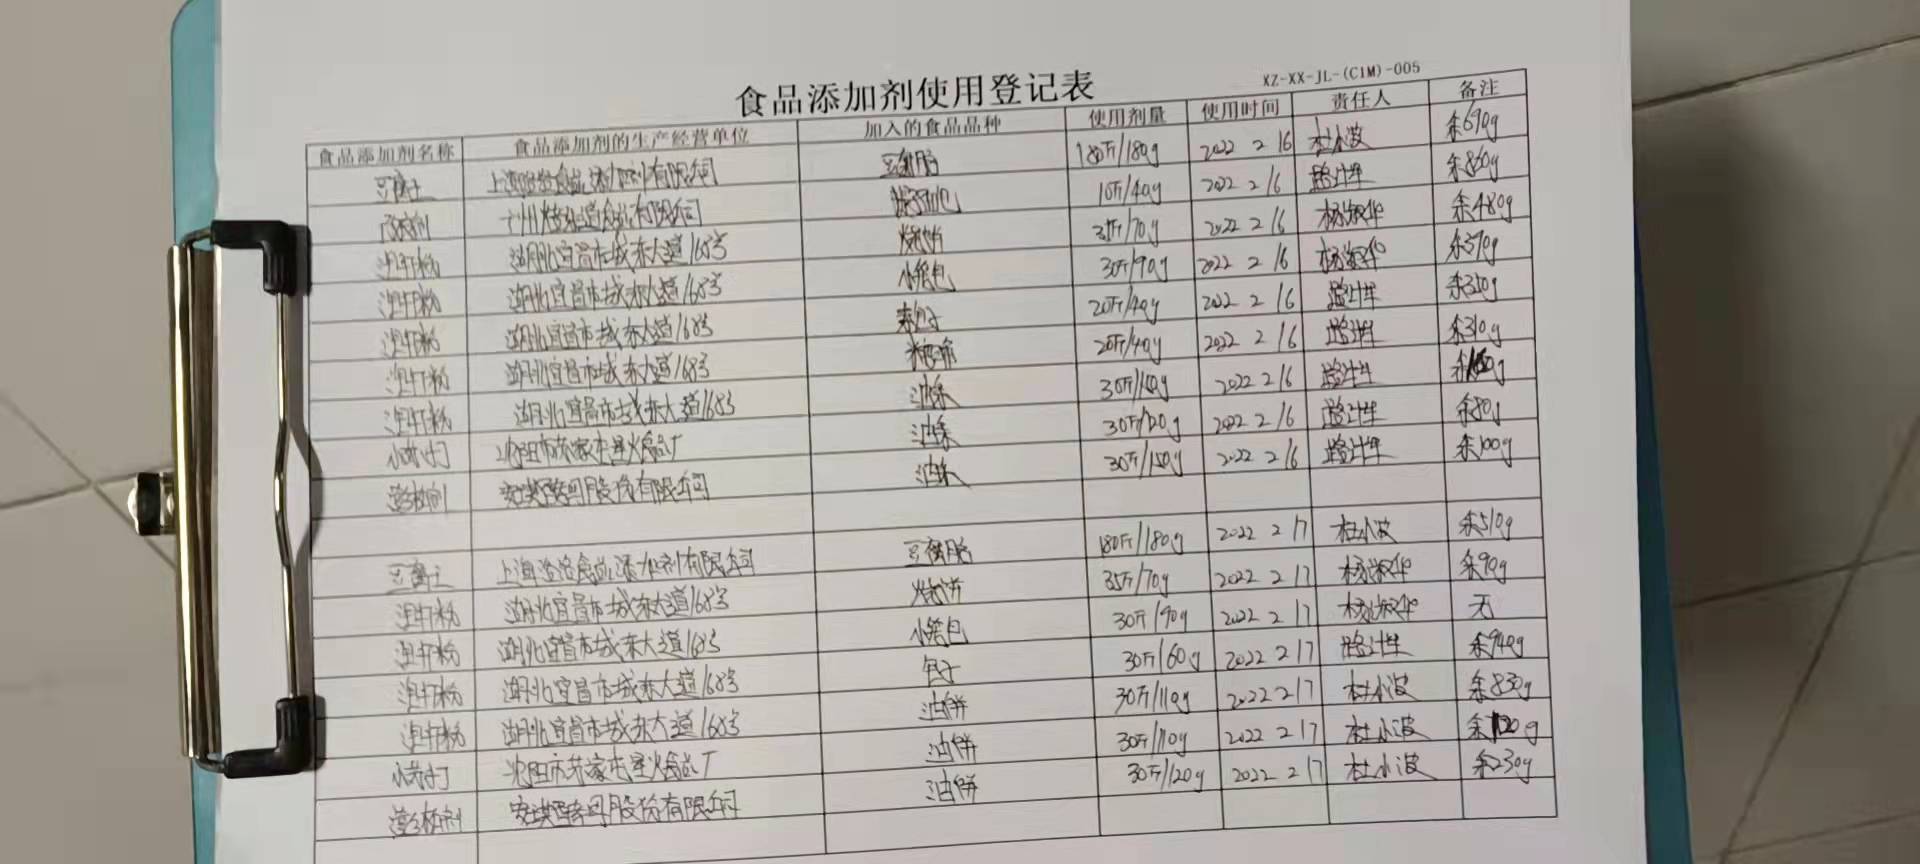 食品添加剂使用登记表
XZ-XX-JL-(CIM)-005
食品添加剂名称 食品添加剂的生产经营单位 加入的食品品种 使用剂量 使用时间 责任人 备注
豆腐王 上海 食品添加剂有限公司 豆腐脑 180斤/180g 2022 2 16 杜小波 余690g
广州 食品有限公司 10斤/40g 2022 2 16 余860g
泡打粉 湖北宜昌市城东大道168号 烧饼 35斤/70g 2022 2 16 杨淑华 余480g
泡打粉 湖北宜昌市城东大道168号 小笼包 30斤/90g 2022 2 16 杨淑华 余390g
泡打粉 湖北宜昌市城东大道168号 菜包子 20斤/40g 2022 2 16 余350g
泡打粉 湖北宜昌市城东大道168号 20斤/40g 2022 2 16 余310g
泡打粉 湖北宜昌市城东大道168号 油条 30斤/150g 2022 2 16
小苏打 沈阳市苏家屯星火食品厂 油条 30斤/120g 2022 2 16 余80g
膨松剂 安琪酵母股份有限公司 油条 30斤/150g 2022 2 16 余100g
豆腐王 上海 食品添加剂有限公司 豆腐脑 180斤/180g 2022 2 17 杜小波 余510g
泡打粉 湖北宜昌市城东大道168号 烧饼 35斤/70g 2022 2 17 杨淑华 余90g
泡打粉 湖北宜昌市城东大道168号 小笼包 30斤/90g 2022 2 17 杨淑华 无
泡打粉 湖北宜昌市城东大道168号 包子 30斤/60g 2022 2 17 余940g
泡打粉 湖北宜昌市城东大道168号 油饼 30斤/110g 2022 2 17 杜小波 余830g
小苏打 沈阳市苏家屯星火食品厂 油饼 30斤/110g 2022 2 17 杜小波
膨松剂 安琪酵母股份有限公司 油饼 30斤/120g 2022 2 17 杜小波 余230g